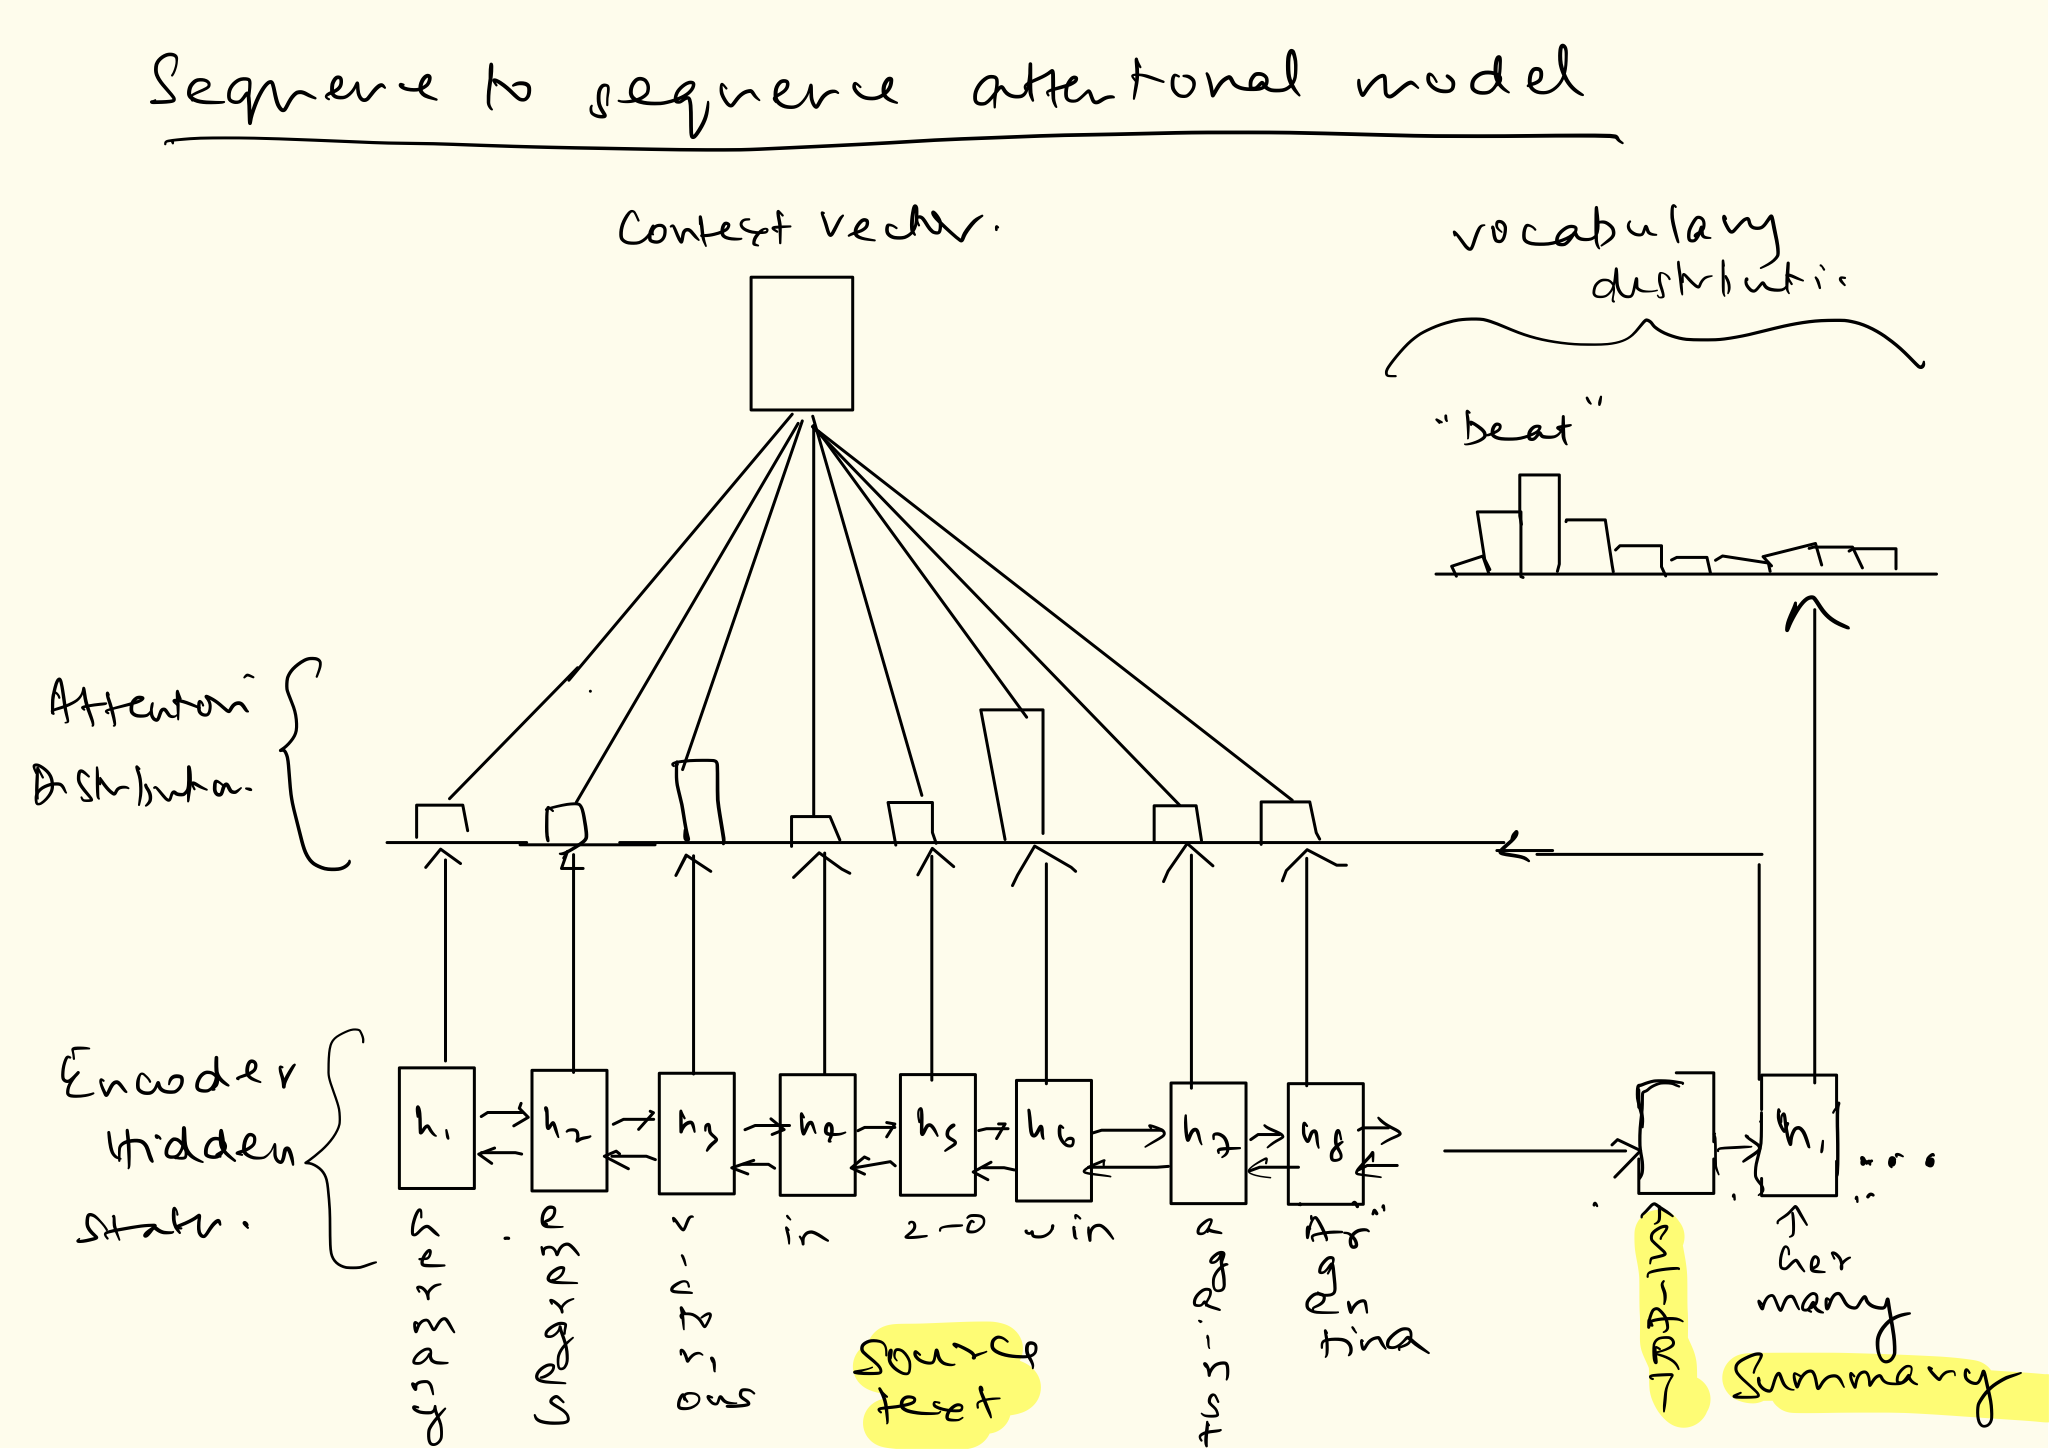 Sequence to sequence attentional model
Context vector.
vocabulary
distributi..
"Beat"
Attention
Distribution.
Encoder
Hidden
state.
h1
h2
h3
h4
h5
h6
h7
h8
h1
....
Germany
emerges
victorious
in
2-0
win
against
Argentina
START
Germany
source
text
Summary